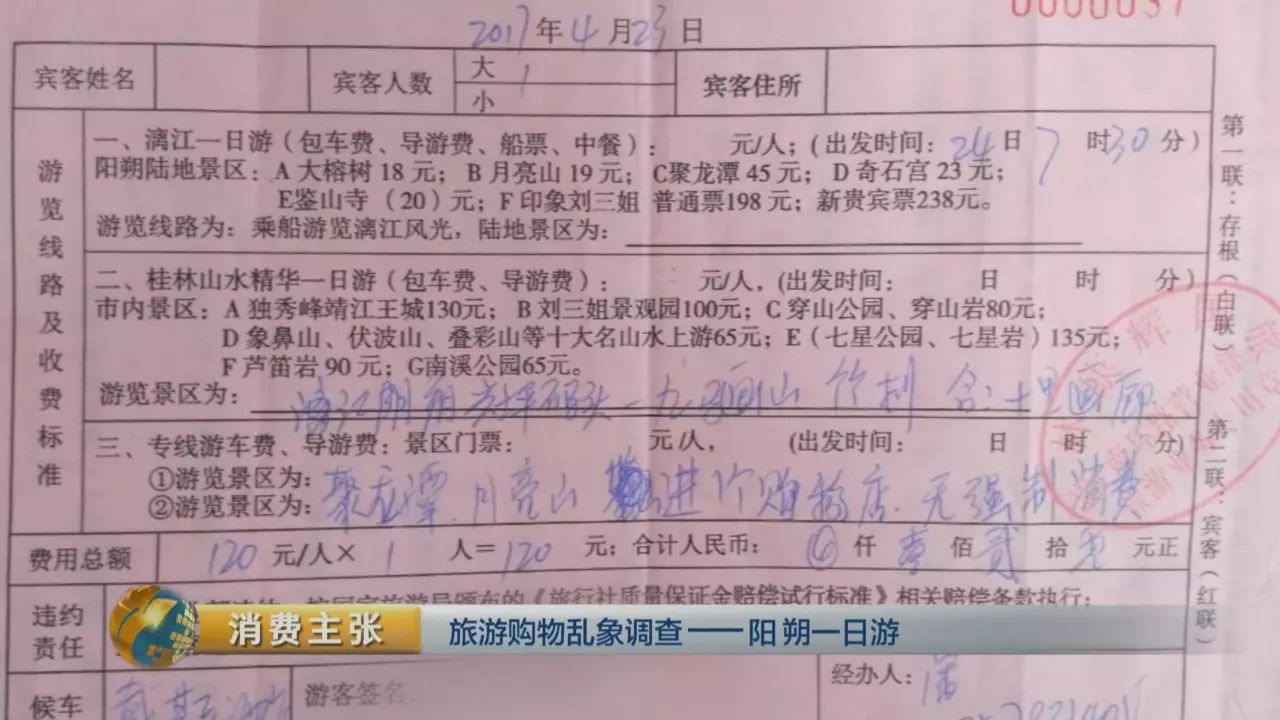 0000037
2017年4月23日
宾客姓名 宾客人数 大 1 小 宾客住所
游览线路及收费标准
一、漓江一日游（包车费、导游费、船票、中餐）： 元/人；（出发时间：24日7时30分）
阳朔陆地景区：A大榕树18元；B月亮山19元；C聚龙潭45元；D奇石宫23元；
E鉴山寺（20）元；F印象刘三姐 普通票198元；新贵宾票238元。
游览线路为：乘船游览漓江风光，陆地景区为：
二、桂林山水精华一日游（包车费、导游费）： 元/人，（出发时间： 日 时 分）
市内景区：A独秀峰靖江王城130元；B刘三姐景观园100元；C穿山公园、穿山岩80元；
D象鼻山、伏波山、叠彩山等十大名山水上游65元；E（七星公园、七星岩）135元；
F芦笛岩90元；G南溪公园65元。
游览景区为：漓江 码头一九 山 竹 十里画廊
三、专线游车费、导游费：景区门票： 元/人， （出发时间： 日 时 分）
①游览景区为：聚龙潭.月亮山 进个购物店.无强制消费
②游览景区为：
费用总额 120元/人×1人＝120元；合计人民币： 仟壹佰贰拾 元正
违约责任
国家旅游局颁布的《旅行社质量保证金赔偿试行标准》相关赔偿条款执行；
候车 游客签名 经办人：
第一联：存根（白联） 第二联：宾客（红联）
消费主张 旅游购物乱象调查——阳朔一日游